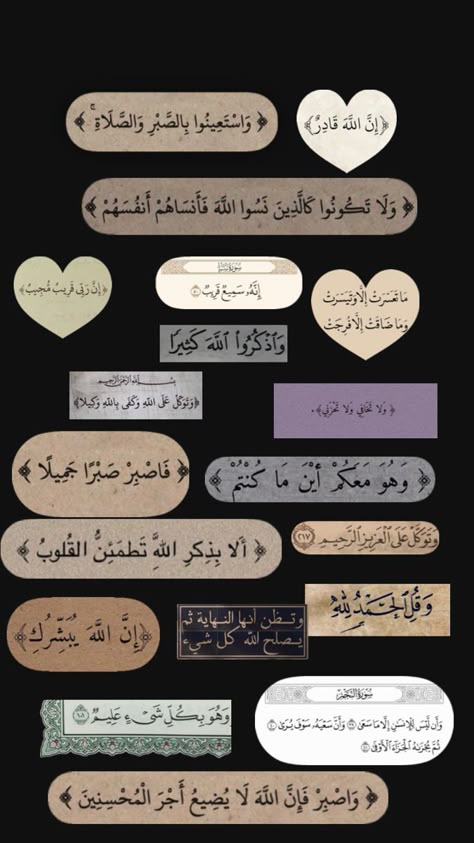 ﴿ وَاسْتَعِينُوا بِالصَّبْرِ وَالصَّلَاةِ ۚ ﴾
﴿إِنَّ اللَّهَ قَادِرٌ﴾
﴿ وَلَا تَكُونُوا كَالَّذِينَ نَسُوا اللَّهَ فَأَنسَاهُمْ أَنفُسَهُمْ ﴾
﴿إِنَّ رَبِّي قَرِيبٌ مُّجِيبٌ﴾
إِنَّهُۥ سَمِيعٌ قَرِيبٌ ۝٥٠
مَا تَعَسَّرَتْ إِلَّا وَتَيَسَّرَتْ
وَمَا ضَاقَتْ إِلَّا فُرِجَتْ
وَٱذْكُرُوا۟ ٱللَّهَ كَثِيرًا
بِسْمِ اللهِ الرَّحْمَنِ الرَّحِيمِ
﴿وَتَوَكَّلْ عَلَى اللهِ وَكَفَى بِاللهِ وَكِيلًا﴾
﴿ وَلَا تَخَافِي وَلَا تَحْزَنِي﴾.
﴿ فَاصْبِرْ صَبْرًا جَمِيلًا ﴾
﴿ وَهُوَ مَعَكُمْ أَيْنَ مَا كُنْتُمْ ﴾
﴿ أَلَا بِذِكْرِ اللَّهِ تَطْمَئِنُّ القُلُوبُ ﴾
وَتَوَكَّلْ عَلَى ٱلْعَزِيزِ ٱلرَّحِيمِ ۝٢١٧
﴿إِنَّ اللَّهَ يُبَشِّرُكِ﴾
وتظن أنها النهاية ثم
يصلح الله كل شيء
وَقُلِ الْحَمْدُ لِلَّهِ
وَهُوَ بِكُلِّ شَيْءٍ عَلِيمٌ ۝١٠١
سُورَةُ النَّجْمِ
وَأَن لَّيْسَ لِلْإِنسَٰنِ إِلَّا مَا سَعَىٰ ۝٣٩ وَأَنَّ سَعْيَهُۥ سَوْفَ يُرَىٰ ۝٤٠
ثُمَّ يُجْزَىٰهُ ٱلْجَزَآءَ ٱلْأَوْفَىٰ ۝٤١
﴿ وَاصْبِرْ فَإِنَّ اللَّهَ لَا يُضِيعُ أَجْرَ الْمُحْسِنِينَ ﴾